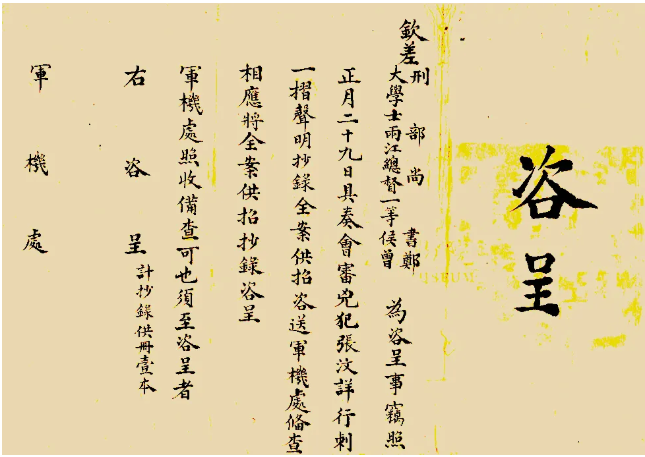 咨呈
欽差
刑部尚書鄭
大學士兩江總督一等侯曾
為咨呈事竊照
正月二十九日具奏會審兇犯張汶詳行刺
一摺聲明抄錄全案供招咨送軍機處備查
相應將全案供招抄錄咨呈
軍機處照收備查可也須至咨呈者
計抄錄供冊壹本
右咨呈
軍機處